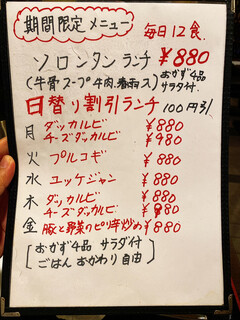 期間限定メニュー
毎日12食
ソロンタンランチ ¥880
(牛骨スープ牛肉、春雨入) おかず4品 サラダ付.
日替り割引ランチ 100円引
月 ダッカルビ ¥880
チーズダッカルビ ¥980
火 プルコギ ¥880
水 ユッケジャン ¥880
木 ダッカルビ ¥880
チーズダッカルビ ¥980
金 豚と野菜のピリ辛炒め ¥880
おかず4品 サラダ付
ごはん おかわり 自由